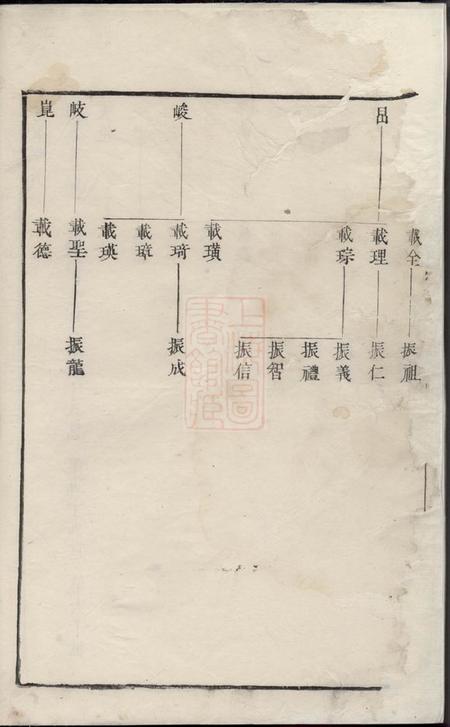 岊 峻 岐 崑
載全 載理 載琮 載璜 載琦 載璋 載瑛 載聖 載德
振祖 振仁 振義 振禮 振智 振信 振成 振龍
上海圖書館藏